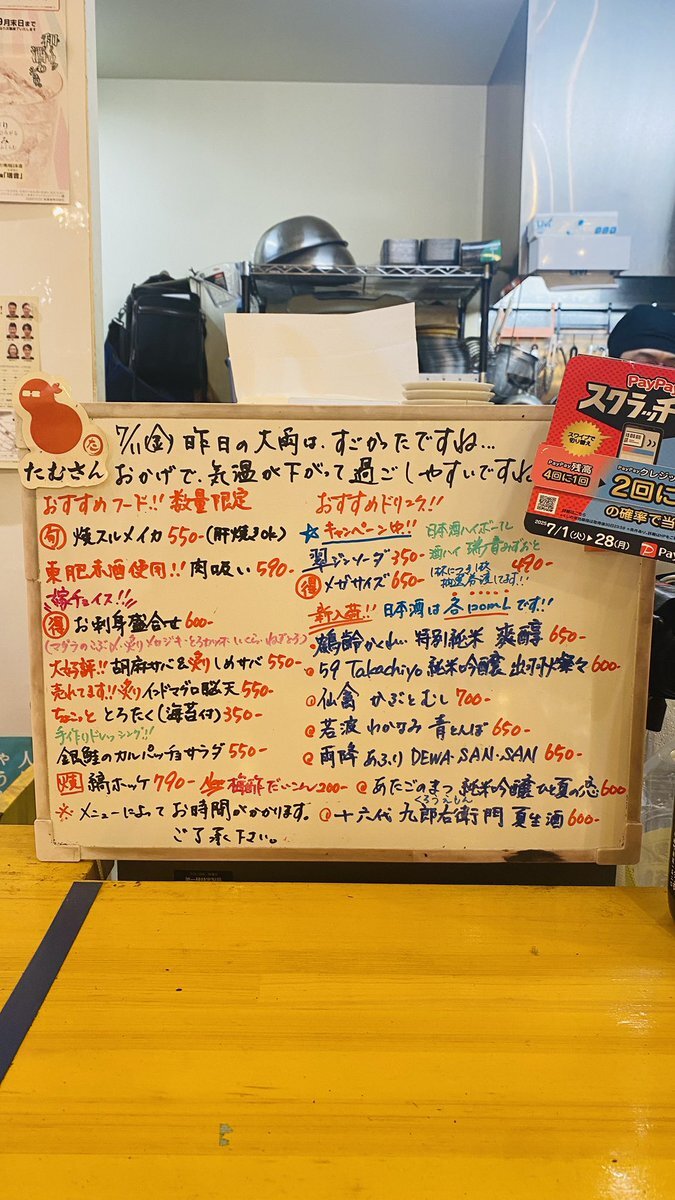 9月末日まで
た
たむさん
7/11(金) 昨日の大雨は、すごかったですね...
おかげで、気温が下がって過ごしやすいですね
おすすめフード!! 数量限定
旬 焼スルメイカ 550-(肝焼きok)
東肥赤酒使用!! 肉吸い 590-
嫁チョイス!!
得 お刺身盛合せ 600-
大好評!! 胡麻サバ&炙りしめサバ 550-
売れてます!! 炙りインドマグロ脳天 550-
ちょこっと とろたく(海苔付) 350-
手作りドレッシング!!
銀鮭のカルパッチョサラダ 550-
焼 縞ホッケ 790- 梅酢だいこん 200-
※メニューによってお時間がかかります。
ご了承下さい。
おすすめドリンク!!
☆キャンペーン中!!
日本酒ハイボール
翠ジンソーダ 350-
酒ハイ 瑞音みずおと
490-
得 メガサイズ 650-
1杯につき1枚
抽選券進呈してます!!
新入荷!! 日本酒は各100mLです!!
鶴齢かくれい 特別純米 爽醇 650-
59 Takachiyo 純米吟醸 出羽燦々 600-
仙禽 かぶとむし 700-
若波 わかなみ 青とんぼ 650-
雨降 あふり DEWA・SAN・SAN 650-
あたごのまつ 純米吟醸 ひと夏の恋 600
くろうえもん
十六代 九郎右衛門 夏生酒 600-
PayPay
スクラッチ
スワイプで切り替え
PayPay残高
4回に1回
PayPayクレジッ
2回に
の確率で当
2025年
7/1(火)▶28(月)
Pay